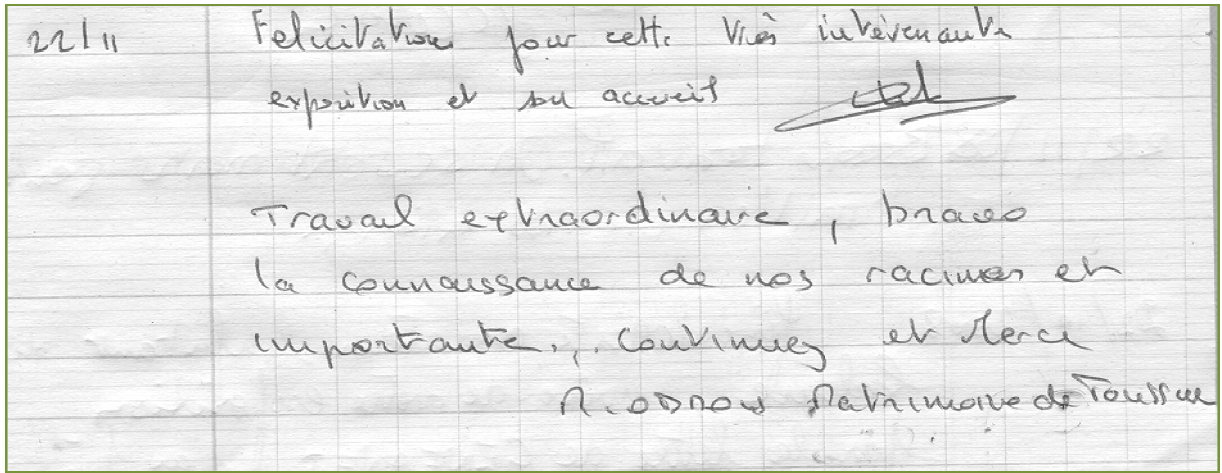 22/11 Felicitation pour cette très intérenante
exposition et son accueil
Travail extraordinaire, bravo
la connaissance de nos racines et
importante., Continuez et Merci
Patrimoine de Toussus